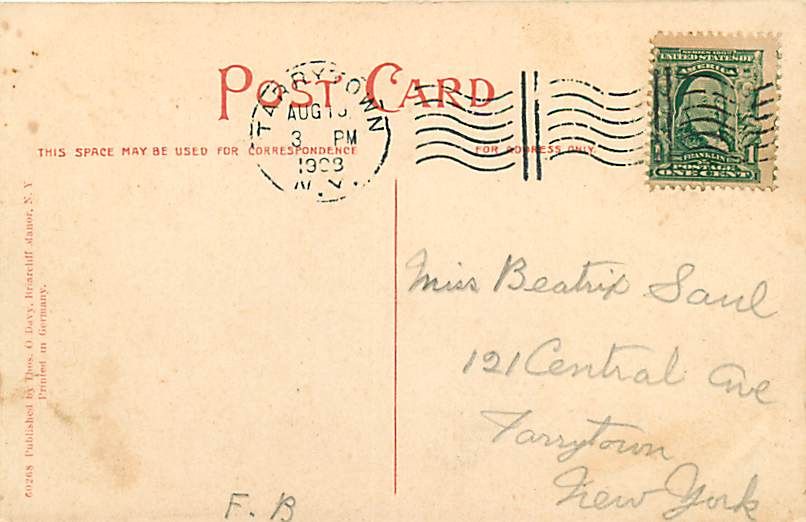 POST CARD
TARRYTOWN
AUG 13
3 PM
1908
N.Y.
SERIES 1902
UNITED STATES OF
AMERICA
FRANKLIN
1 1
POSTAGE
ONE CENT
THIS SPACE MAY BE USED FOR CORRESPONDENCE
FOR ADDRESS ONLY.
Miss Beatrix Saul
121 Central Ave
Tarrytown
New York
F. B
60268 Published by Thos. O Davy, Briarcliff Manor, N. Y
Printed in Germany.